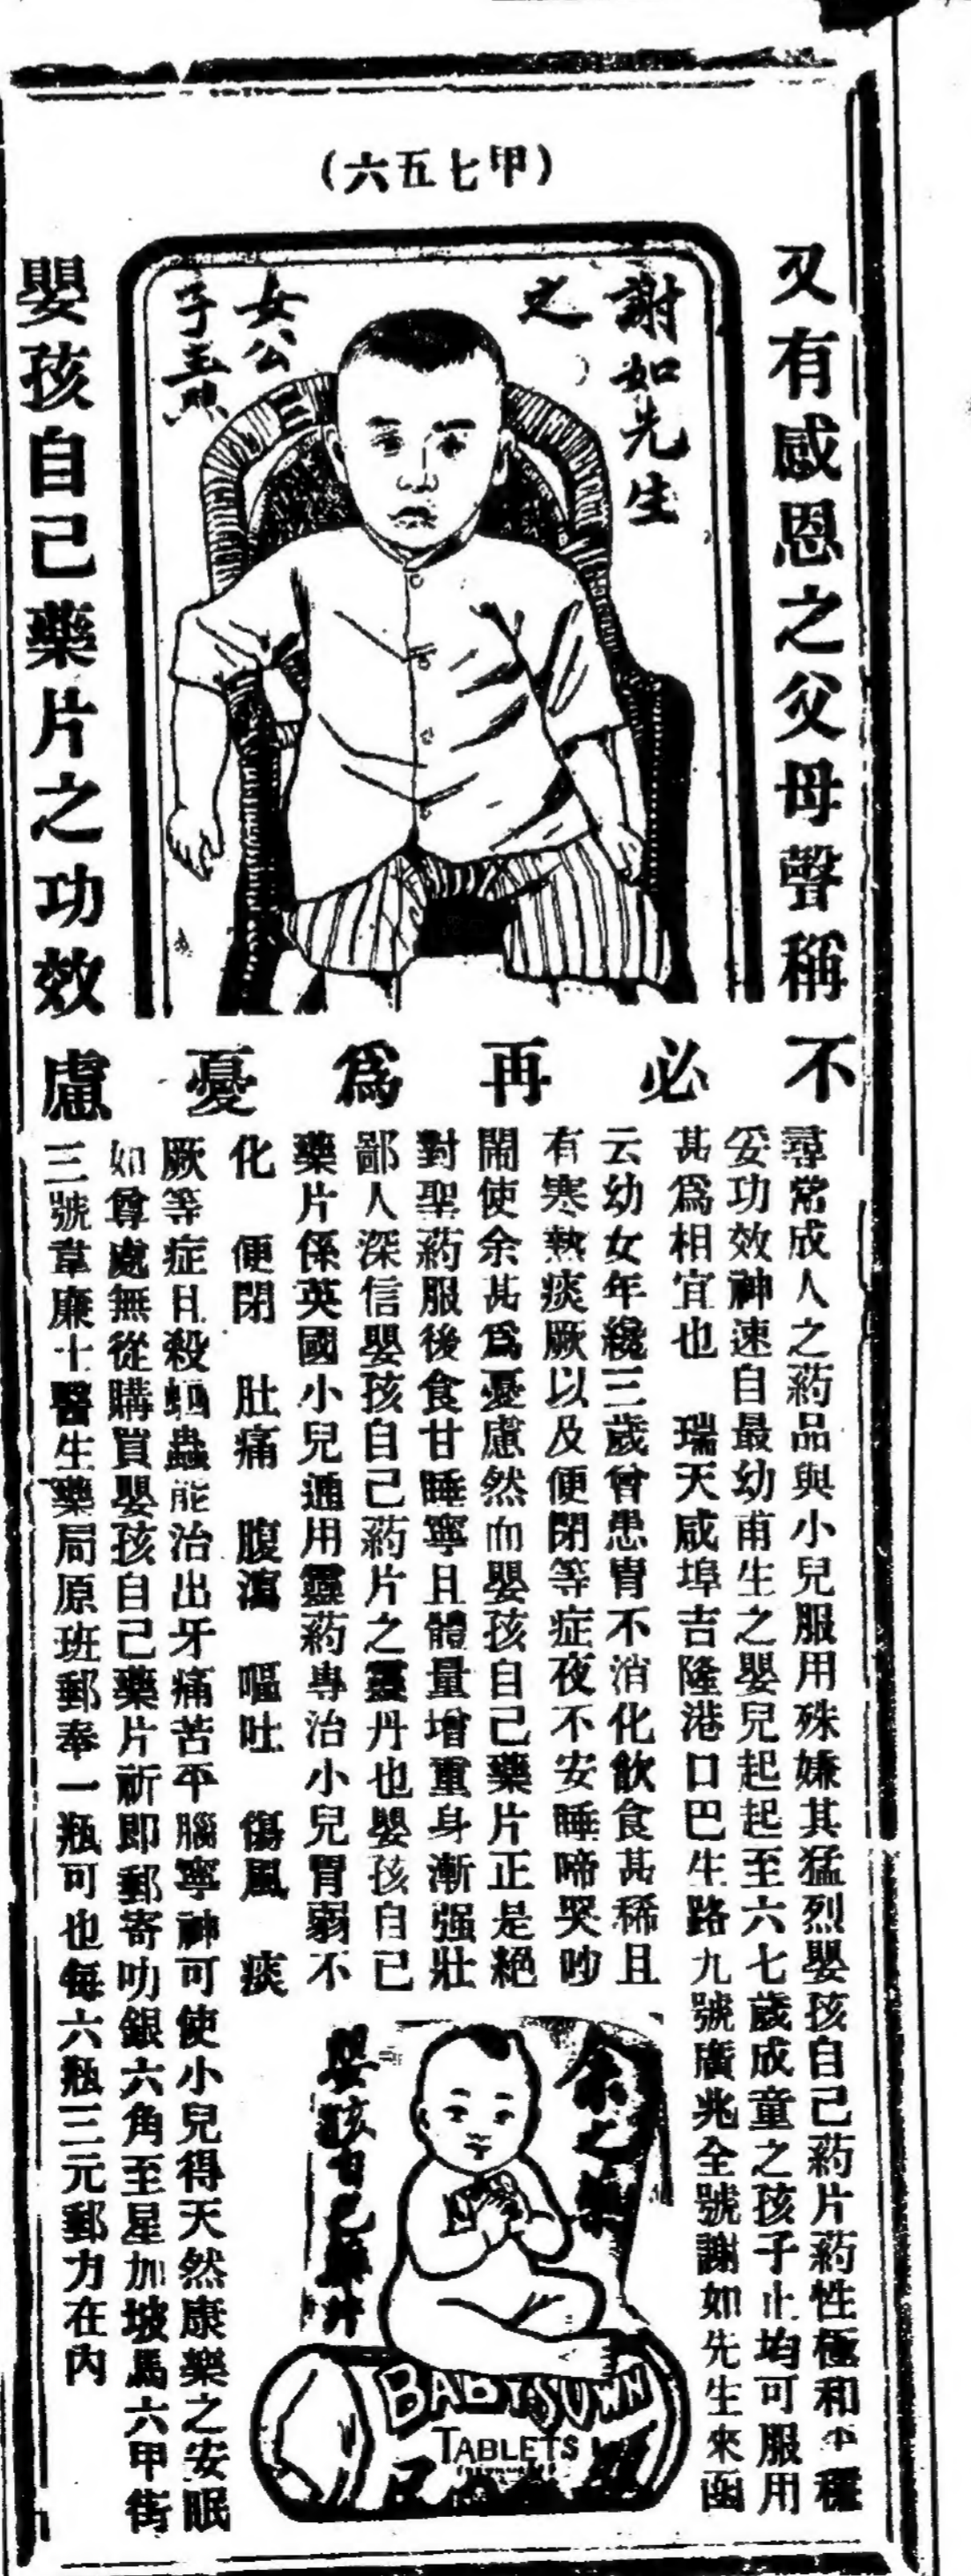 (甲七五六)
又有感恩之父母聲稱
謝如先生
之
女公
子玉
嬰孩自己藥片之功效
不必再為憂慮
尋常成人之葯品與小兒服用殊嫌其猛烈嬰孩自己葯片葯性極和平穩
妥功效神速自最幼甫生之嬰兒起起至六七歲成童之孩子止均可服用
甚為相宜也　瑞天咸埠吉隆港口巴生路九號廣兆全號謝如先生來函
云幼女年纔三歲曾患胃不消化飲食甚稀且
有寒熱痰厥以及便閉等症夜不安睡啼哭吵
鬧使余甚為憂慮然而嬰孩自己藥片正是絕
對聖葯服後食甘睡寧且體量增重身漸强壯
鄙人深信嬰孩自己葯片之靈丹也嬰孩自己
藥片係英國小兒通用靈葯專治小兒胃弱不
化　便閉　肚痛　腹瀉　嘔吐　傷風　痰
厥等症且殺蛔蟲能治出牙痛苦平腦寧神可使小兒得天然康樂之安眠
如尊處無從購買嬰孩自己藥片祈即郵寄叻銀六角至星加坡馬六甲街
三號韋廉士醫生藥局原班郵奉一瓶可也每六瓶三元郵力在內
余之樂
嬰孩自己藥片
BABY'S OWN
TABLETS